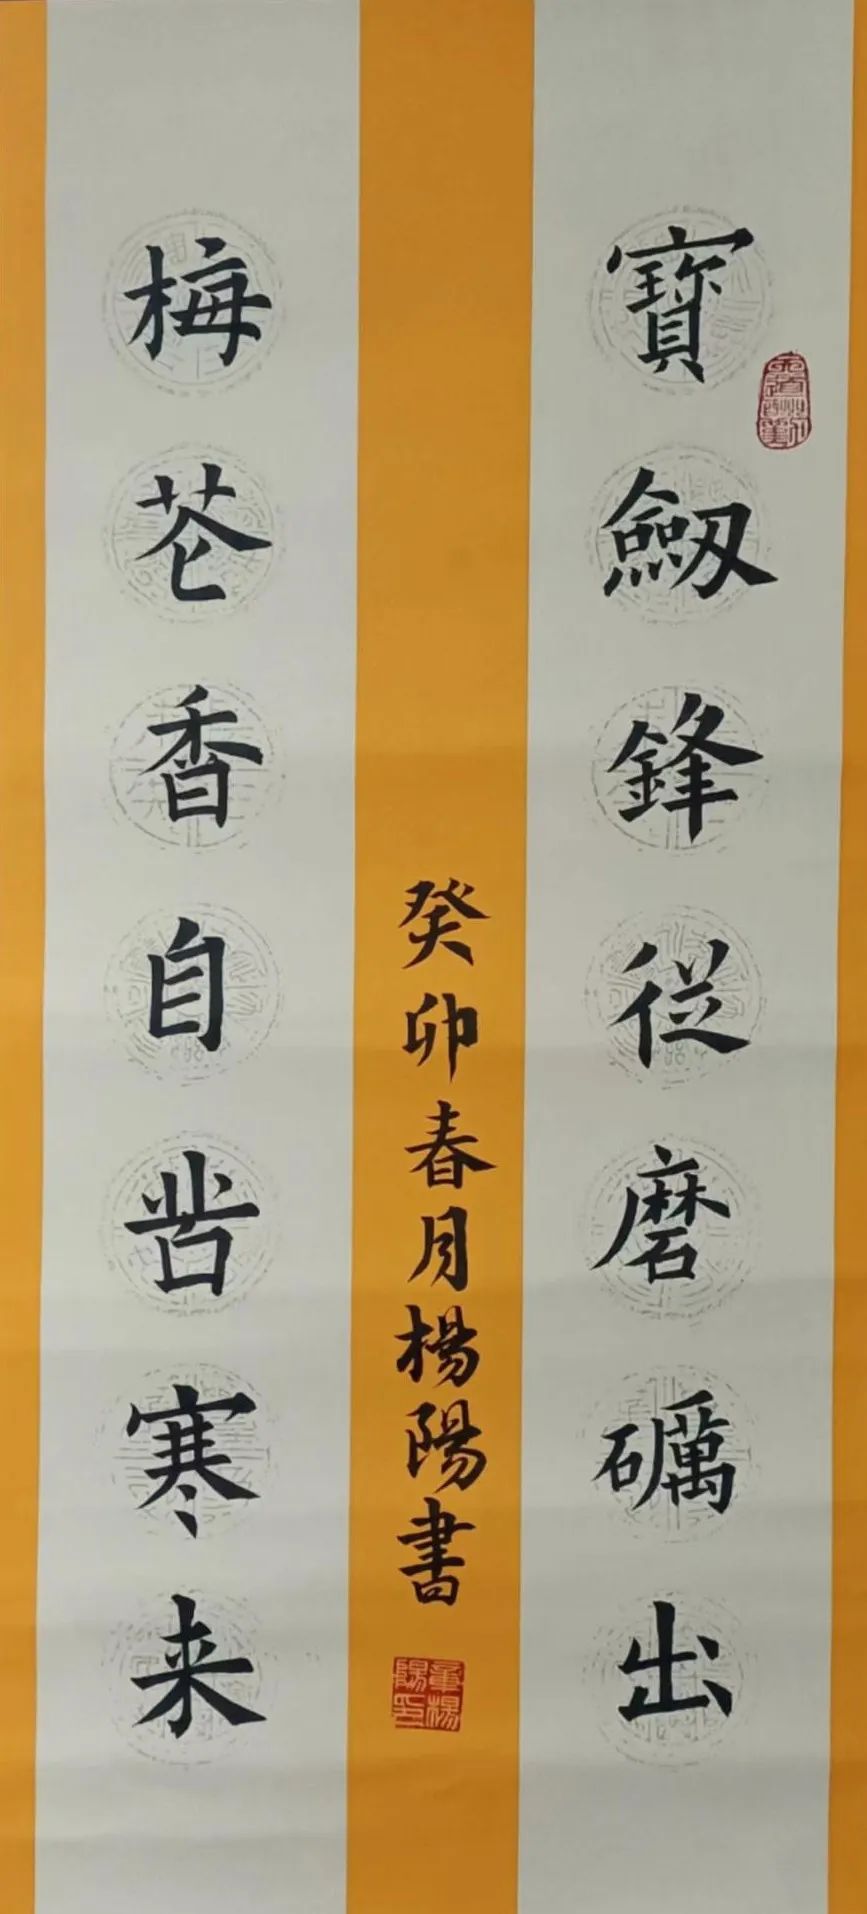 寶劔鋒從磨礪出
梅苍香自甘寒来
癸卯春月楊陽書